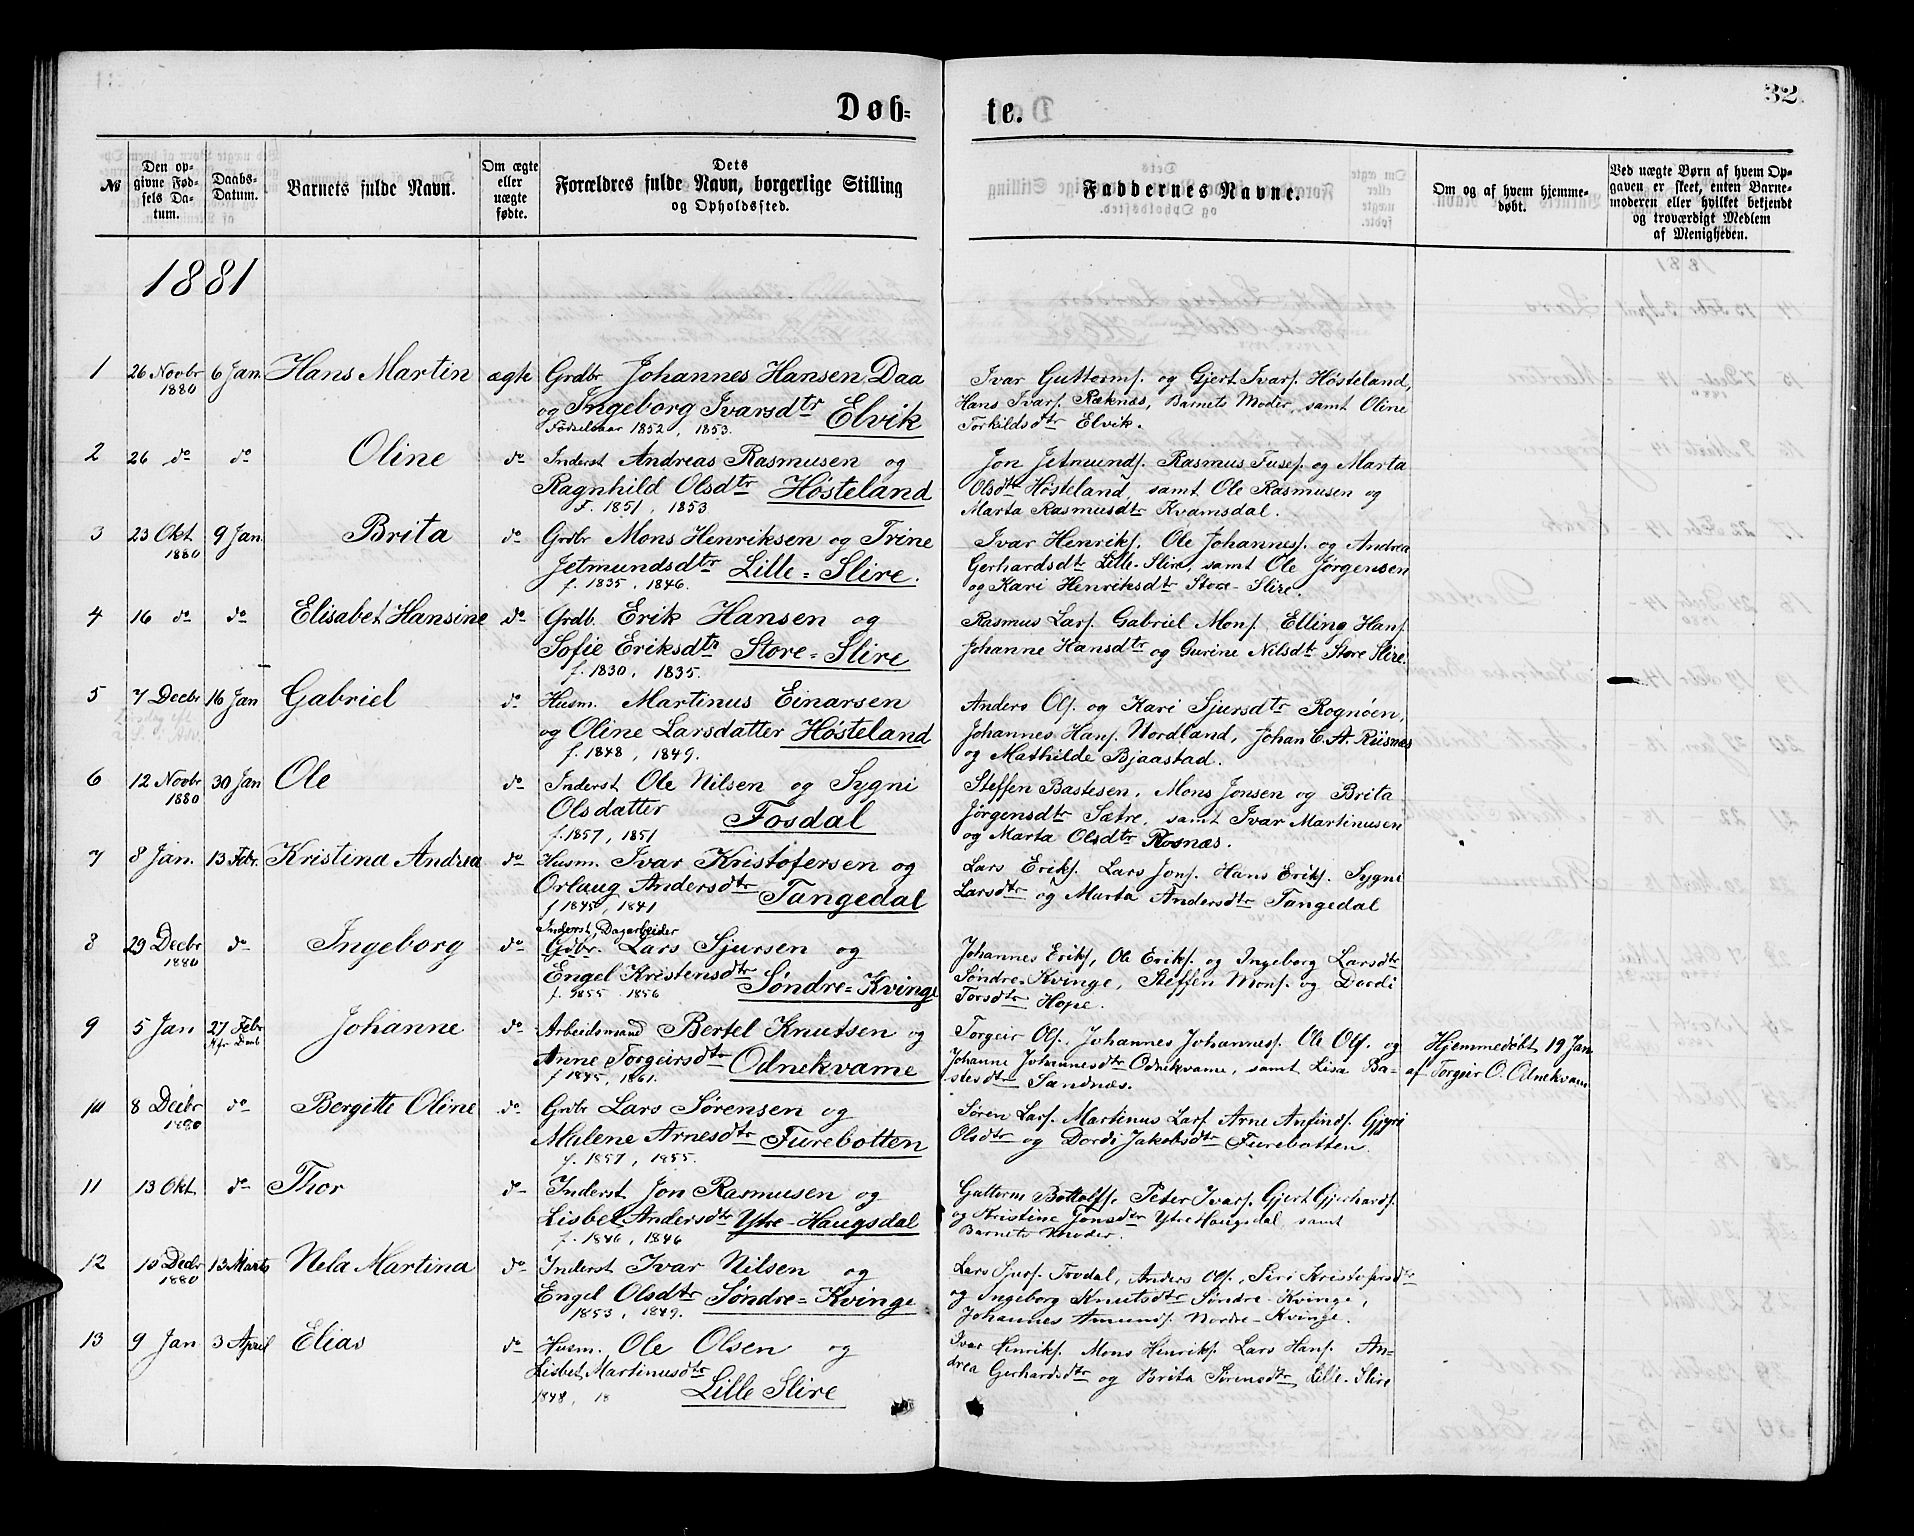 Døb-
te.
32.
№
Den op-
givne Fød-
sels Da-
tum.
Daabs-
Datum.
Barnets fulde Navn.
Om ægte
eller
uægte
fødte.
Dets
Forældres fulde Navn, borgerlige Stilling
og Opholdssted.
Faddernes Navne.
Om og af hvem hjemme-
døbt.
Ved uægte Børn af hvem Op-
gaven er skeet, enten Barne-
moderen eller hvilket bekjendt
og troværdigt Medlem
af Menigheden.
1881
1 26 Novbr 6 Jan Hans Martin ægte Grdbr Johannes Hansen Daa Ivar Guttorms. og Gjert Ivars. Høsteland,
1880 og Ingeborg Ivarsdtr Elvik Hans Ivars. Ræknes, Barnets Moder, samt Oline
Fødselsaar 1852, 1853. Torkildsdtr Elvik.
2 26 do do Oline do Inderst Andreas Rasmusen og Jon Jetmunds. Rasmus Tuses. og Marta
Ragnhild Olsdtr Høsteland Olsdtr Høsteland, samt Ole Rasmusen og
F. 1851, 1853 Marta Rasmusdtr Kvamsdal.
3 23 Okt 9 Jan Brita do Grdbr Mons Henriksen og Trine Ivar Henriks. Ole Johannes. og Andrea
1880 Jetmundsdtr Lille-Slire. Gerhardsdtr Lille-Slire, samt Ole Jørgensen
f. 1835, 1846. og Kari Henriksdtr Store-Slire.
4 16 do do Elisabet Hansine do Grdb. Erik Hansen og Rasmus Lars. Gabriel Mons. Elling Hans.
Sofie Eriksdtr Store-Slire Johanne Hansdtr og Gurine Nilsdt Store Slire.
f. 1830, 1835.
5 7 Decbr 16 Jan Gabriel do Husm. Martinus Einarsen Anders Ols. og Kari Sjursdtr Rognøen,
og Oline Larsdatter Høsteland Johannes Hans. Nordland, Johan C. A. Riisnæs
f. 1848, 1849. og Mathilde Bjaastad.
6 12 Novbr 30 Jan Ole do Inderst Ole Nilsen og Sygni Steffen Bastesen, Mons Jonsen og Brita
1880 Olsdatter Fosdal Jørgensdtr Sætre, samt Ivar Martinusen
f. 1857, 1851 og Marta Olsdtr Rosnæs.
7 8 Jan. 13 Febr. Kristina Andrea do Husm. Ivar Kristofersen og Lars Eriks. Lars Jons. Hans Eriks. Sygni
Orlaug Andersdtr Tangedal Larsdtr og Marta Andersdtr Tangedal
f 1845, 1841
Inderst, Dagarbeider
8 29 Decbr do Ingeborg do Gdbr. Lars Sjursen og Johannes Eriks, Ole Eriks. og Ingeborg Larsdtr
1880 Engel Kristensdtr Søndre-Kvinge Søndre-Kvinge, Steffen Mons. og Dordi
f. 1855. 1856 Torsdtr Hope.
9 5 Jan 27 Febr Johanne do Arbeidsmand Bertel Knutsen og Torgeir Ols. Johannes Johannes. Ole Ols. og Hjemmedøbt 19 Jan
Anne Torgeirsdtr Odnekvame Johanne Johannesdtr Odnekvame, samt Lisa Ba- af Torgeir O. Odnekvam
f 1845, 1861. stesdtr Sandnæs.
10 8 Decbr do Bergitte Oline do Grdbr Lars Sørensen og Søren Lars. Martinus Lars. Arne Anfinds. Gjyri
1880 Malene Arnesdtr Furebotten Olsdtr og Dordi Jakobsdtr Furebotten.
f. 1857, 1855.
11 13 Okt do Thor do Inderst Jon Rasmusen og Guttorm Bottolfs. Peter Ivars. Gjert Gjerhards.
Lisbet Andersdtr Ytre-Haugsdal og Kristine Jonsdtr Ytre Haugsdal samt
f. 1846, 1846 Barnets Moder.
12 10 Decbr 13 Marts Nela Martina do Inderst Ivar Nilsen og Lars Sjurs. Tovdal, Anders Ols., Siri Kristofersdtr
1880 Engel Olsdtr Søndre-Kvinge og Ingeborg Knutsdtr Søndre-Kvinge,
1853, 1849. Johannes Amunds. Nordre-Kvinge.
13 9 Jan 3 April Elias do Husm. Ole Olsen og Ivar Henriks. Mons Henriks. Lars Hans. An-
Lisbet Martinusdtr drea Gerhardsdtr og Brita Sørensdtr, Lille-Slire
1848, 18 Lille Slire